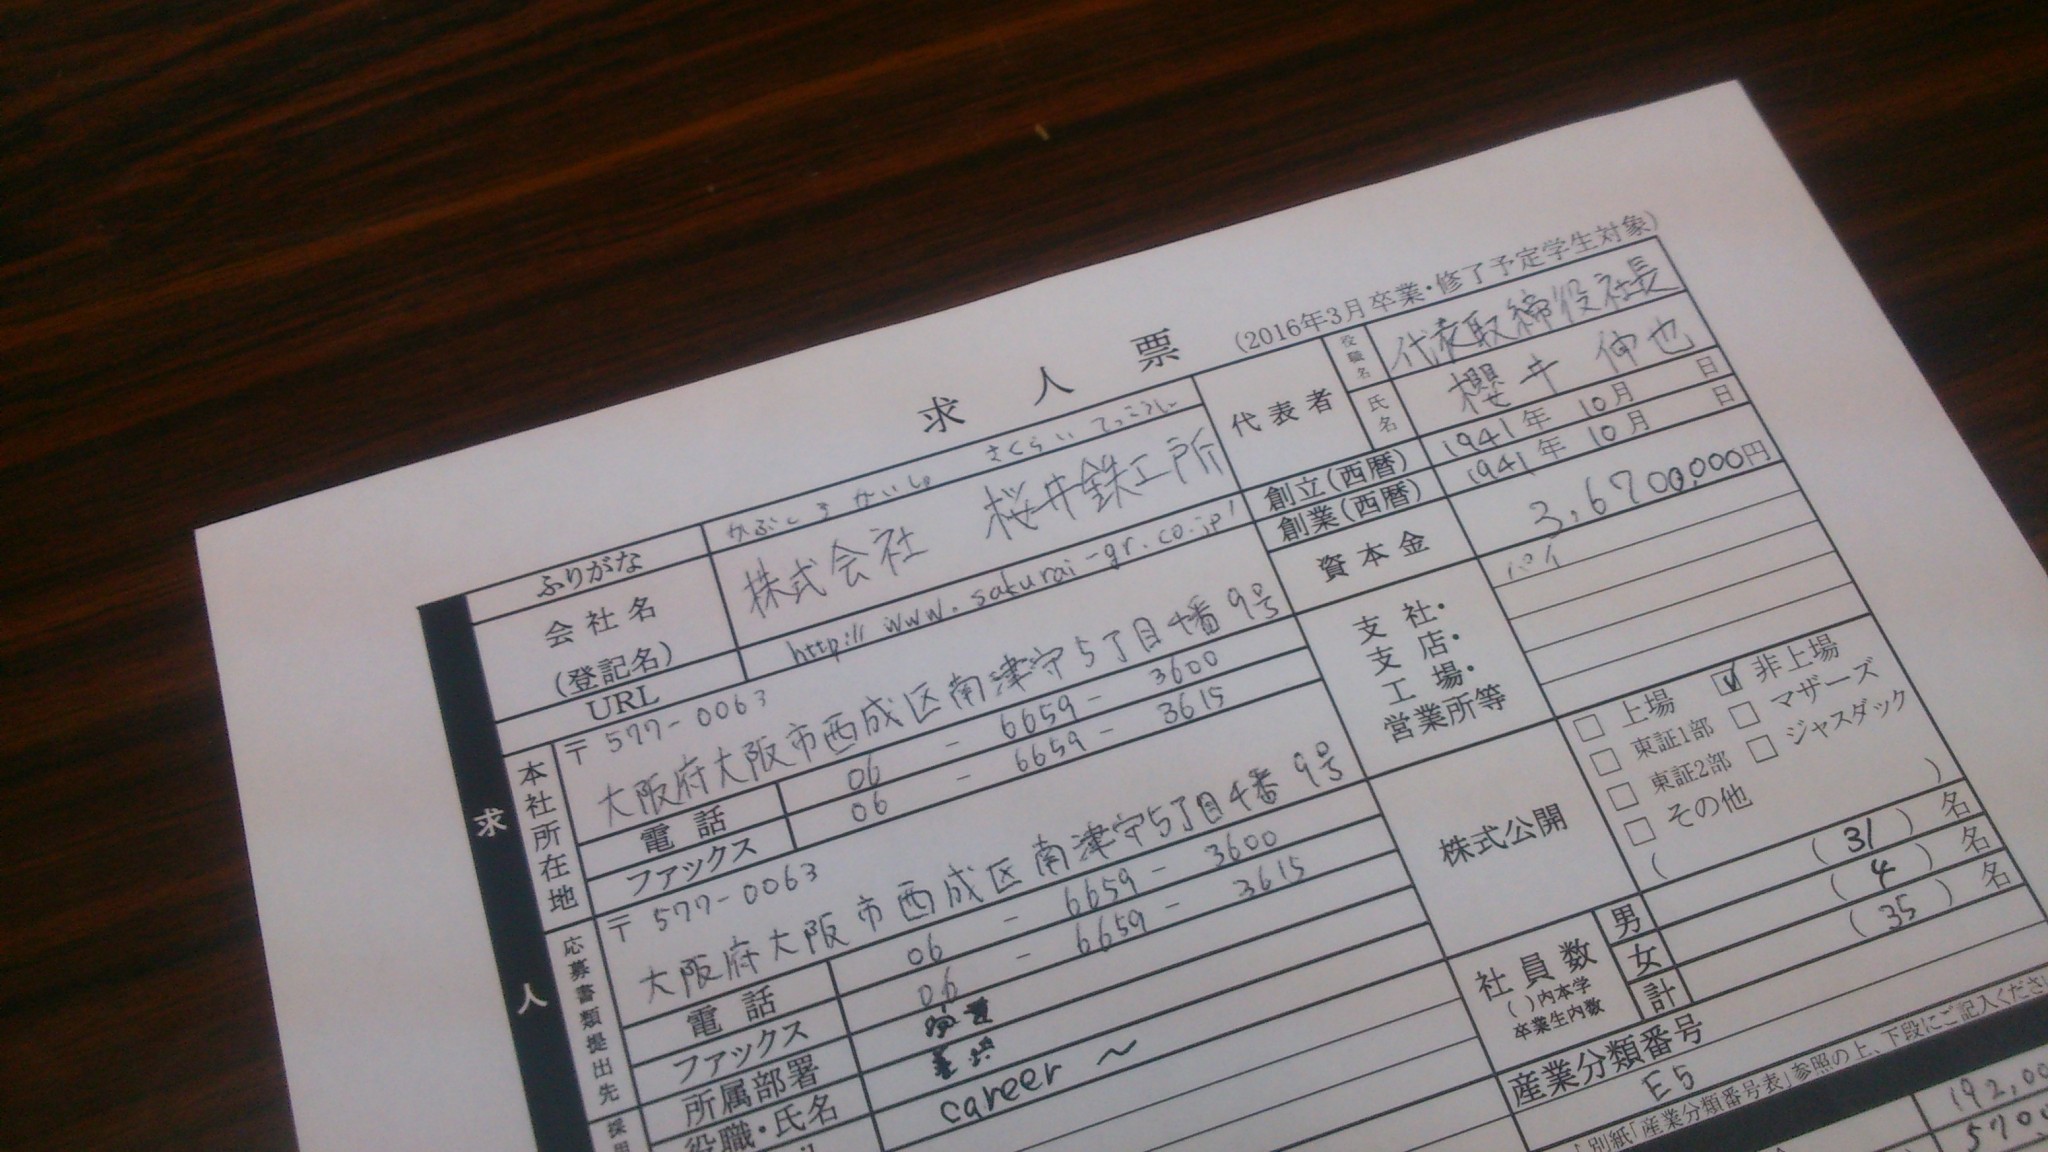 求人票
(2016年3月卒業・修了予定学生対象)
求人
ふりがな かぶしきかいしゃ さくらいてっこうしょ
会社名 (登記名) 株式会社 桜井鉄工所
URL http://www.sakurai-gr.co.jp
本社所在地
〒577-0063
大阪府大阪市西成区南津守5丁目4番9号
電話 06 - 6659 - 3600
ファックス 06 - 6659 - 3615
応募書類提出先
〒577-0063
大阪府大阪市西成区南津守5丁目4番9号
電話 06 - 6659 - 3600
ファックス 06 - 6659 - 3615
所属部署
役職・氏名
career ~
採用
代表者
役職名 代表取締役社長
氏名 櫻井 伸也
創立(西暦) 1941年 10月 日
創業(西暦) 1941年 10月 日
資本金 3,6700,000円
支社・支店・工場・営業所等
株式公開
□ 上場 ☑ 非上場
□ 東証1部 □ マザーズ
□ 東証2部 □ ジャスダック
□ その他
( )
社員数
( )内本学卒業生内数
男 (31) 名
女 (4) 名
計 (35) 名
産業分類番号
E5
別紙「産業分類番号表」参照の上、下段にご記入くださ
192,00
570,